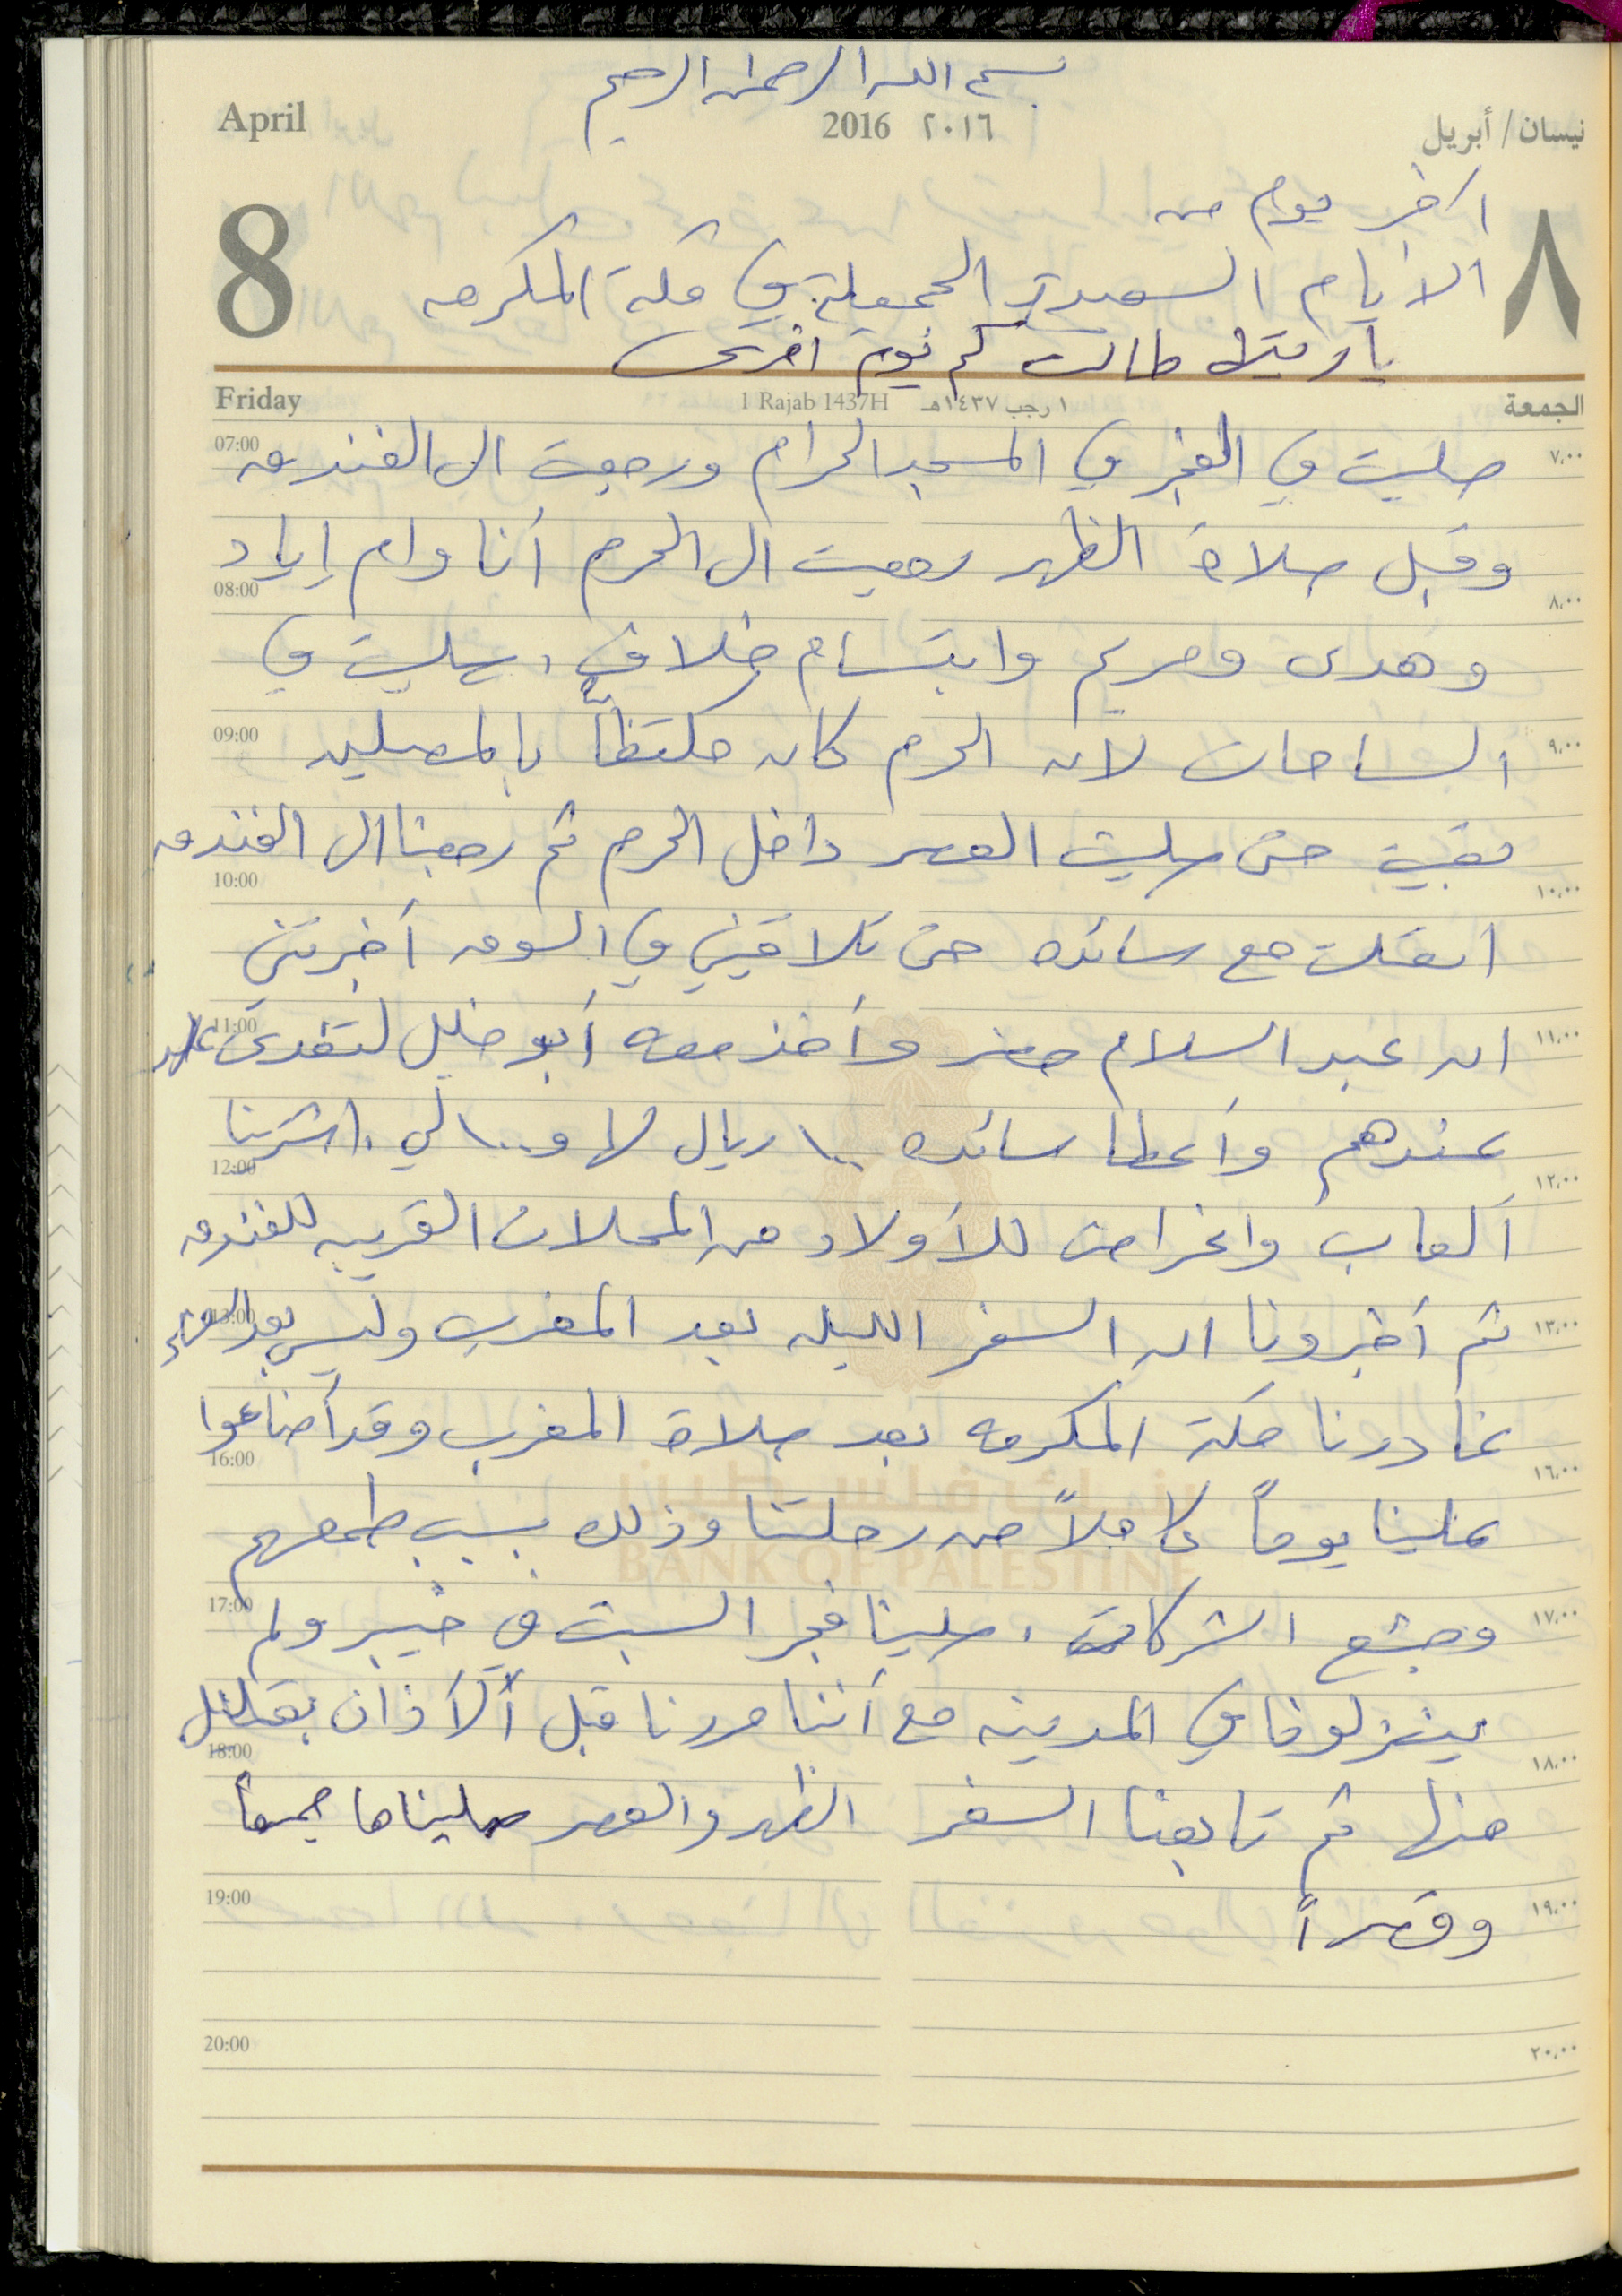 بسم الله الرحمن الرحيم
April 2016 ٢٠١٦ نيسان / أبريل
8 ٨
اخر يوم من
الايام السعيدة الجميلة في مكة المكرمه
ياريتلا طالت كم يوم اخرى
Friday 1 Rajab 1437H ١ رجب ١٤٣٧هـ الجمعة
07:00 صليت في الفجر في المسجد الحرام ورجعت الى الفندق ٧,٠٠
وقبل صلاة الظهر رجعت الى الحرم أنا وام إياد
08:00 ٨,٠٠
وهدى ومريم وابتسام خلاف، صليت في
09:00 الساحات لان الحرم كان مكتظاً بالمصلين ٩,٠٠
بقيت حتى صليت العصر داخل الحرم ثم رجعنا الى الفندق
10:00 ١٠,٠٠
اتصلت مع سائده حتى تلاقيني في السوق أخبرتني
11:00 ان عبد السلام حضر وأخذ معه أبو خليل لتغدى ١١,٠٠
عندهم وأعطا سائده ١٠٠ ريال لها و١٠٠ لي. اشترينا
12:00 ١٢,٠٠
ألعاب واغراض للأولاد من المحلات القريبه للفندق
13:00 ثم أخبرونا ان السفر الليله بعد المغرب وليس بعد العشاء ١٣,٠٠
غادرنا مكة المكرمه بعد صلاة المغرب وقد أضاعوا
16:00 ١٦,٠٠
علينا يوماً كاملاً من رحلتنا وذلك بسبب طمعهم
بنك فلسطين
BANK OF PALESTINE
17:00 وجشع الشركات، صلينا فجر السبت في خيبر ولم ١٧,٠٠
ينزلونا في المدينه مع أننا مررنا قبل ألأذان بقليل
18:00 ١٨,٠٠
منها ثم تابعنا السفر الظهر والعصر صليناها جمعاً
19:00 وقصراً ١٩,٠٠
20:00 ٢٠,٠٠